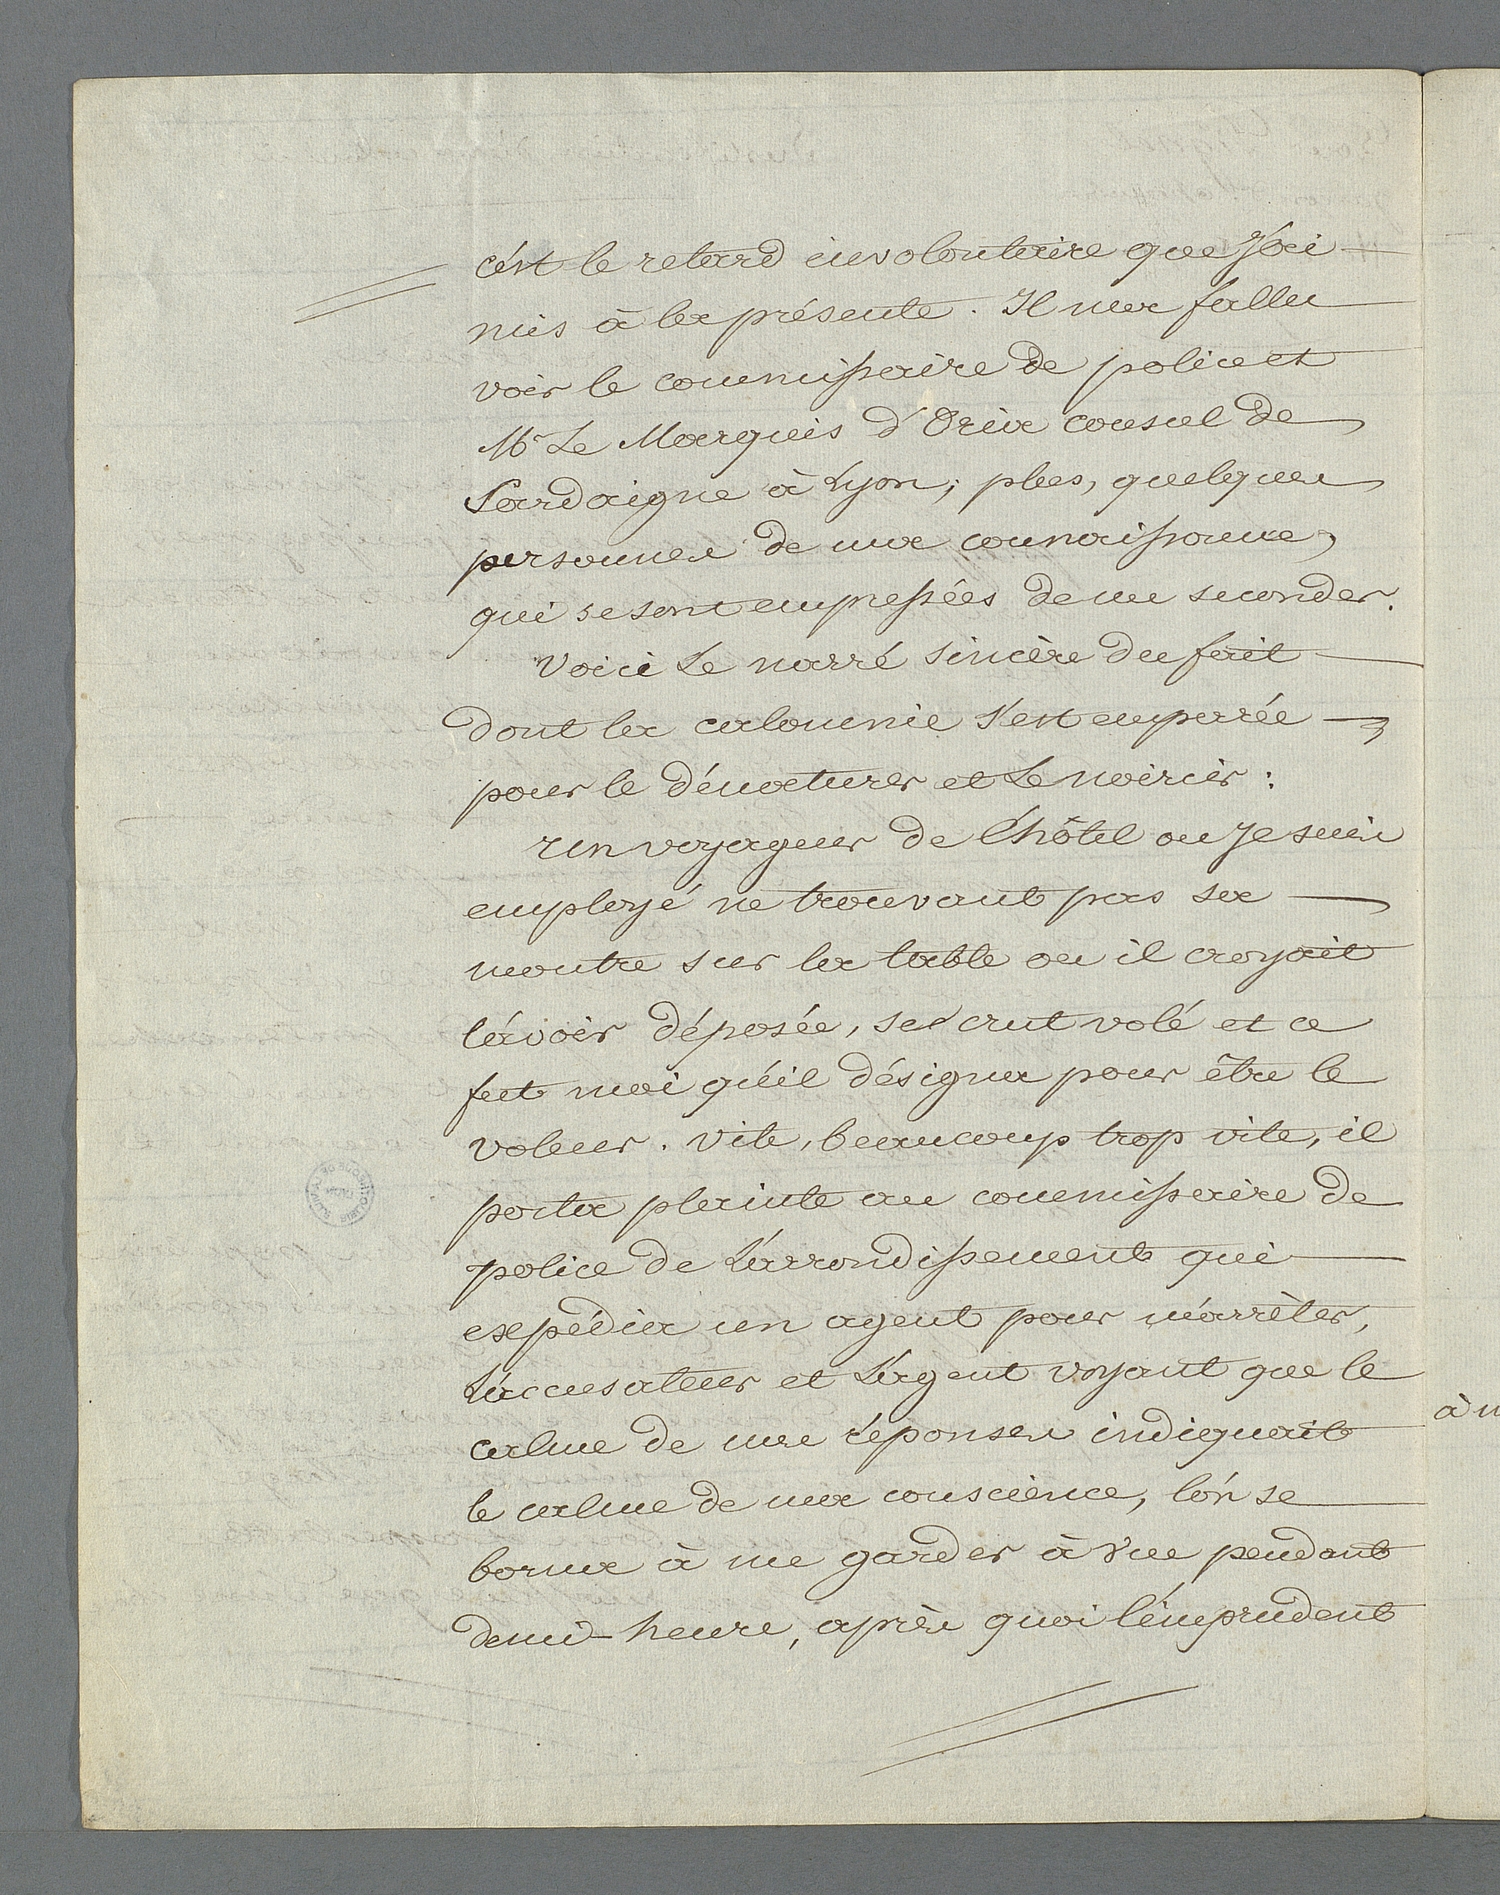 c'ést le retard involontaire que J'ai
mis à la présente. Il m'a fallu
voir le commissaire de police et
Mr Le Marquis d'Oria consul de
Sardaigne à Lyon; plus, quelques
personnes de ma connaissance,
qui se sont empressées de me seconder.
Voici Le narré sincère du fait
dont la calomnie s'est emparée
pour le dénaturer et Le noircir:
un voyageur de l'hôtel ou Je suis
employé ne trouvant pas sa
montre sur la table ou il croyait
l'avoir déposée, se crut volé et ce
fut moi qu'il désigna pour être le
voleur. Vite, beaucoup trop vite, il
porta plainte au commissaire de
police de L'arrondissement qui
expédia un agent pour m'arrèter,
L'accusateur et L'agent voyant que le
calme de me réponses indiquait
le calme de ma conscience, l'on se
borna à me garder à vue pendant
demi-heure, après quoi l'imprudent
à m